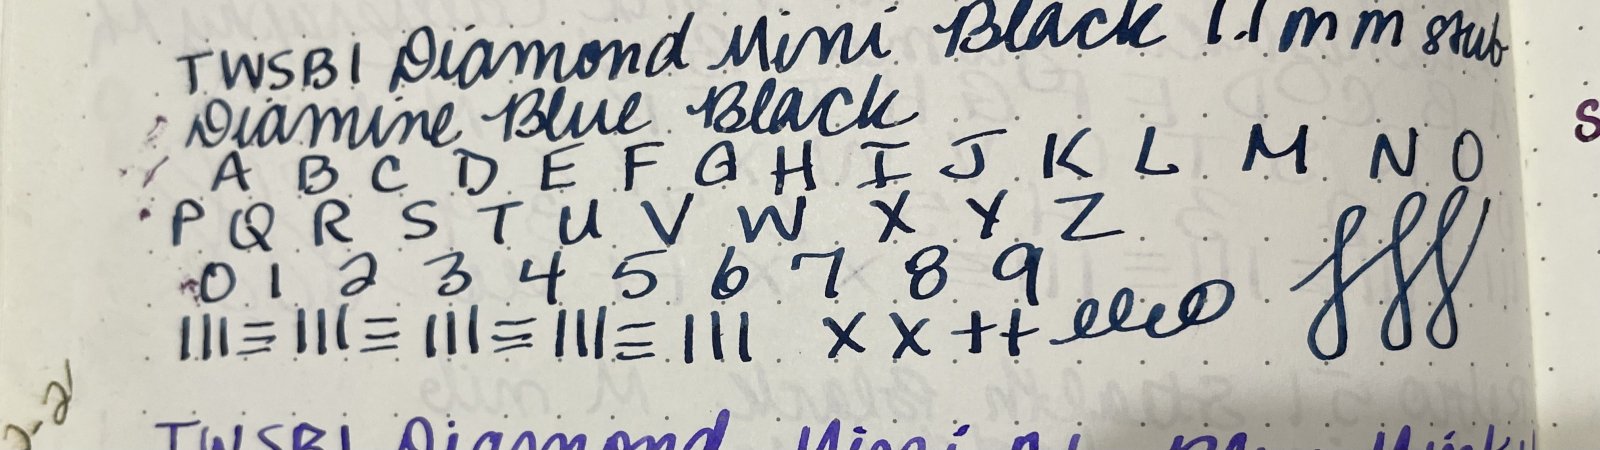 TWSBI Diamond Mini Black 1.1mm stub
Diamine Blue Black
A B C D E F G H I J K L M N O
P Q R S T U V W X Y Z
0 1 2 3 4 5 6 7 8 9
|||≡|||≡|||≡|||≡||| X X ++ elleo fff
TWSBI Diamond Mini